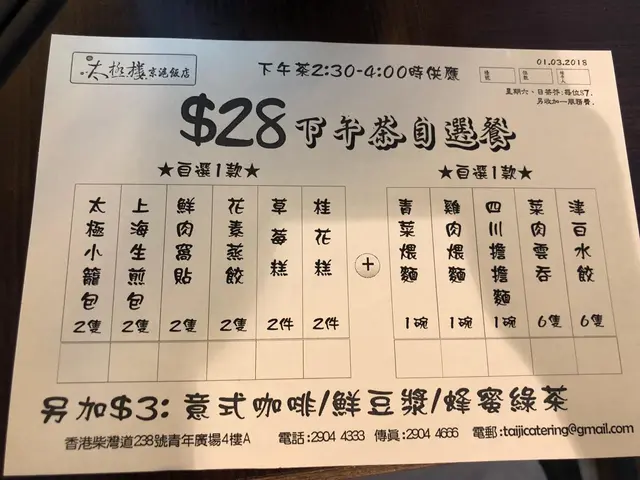 太極樓京滬飯店
下午茶2:30-4:00時供應
01.03.2018
星期六、日茶芥:每位$7.
另收加一服務費.
$28下午茶自選餐
★自選1款★
★自選1款★
太極小籠包 2隻
上海生煎包 2隻
鮮肉窩貼 2隻
花素蒸餃 2隻
草莓糕 2件
桂花糕 2件
+
青菜煨麵 1碗
雞肉煨麵 1碗
四川擔擔麵 1碗
菜肉雲吞 6隻
津白水餃 6隻
另加$3: 意式咖啡/鮮豆漿/蜂蜜綠茶
香港柴灣道238號青年廣場4樓A 電話:2904 4333 傳真:2904 4666 電郵:taijicatering@gmail.com